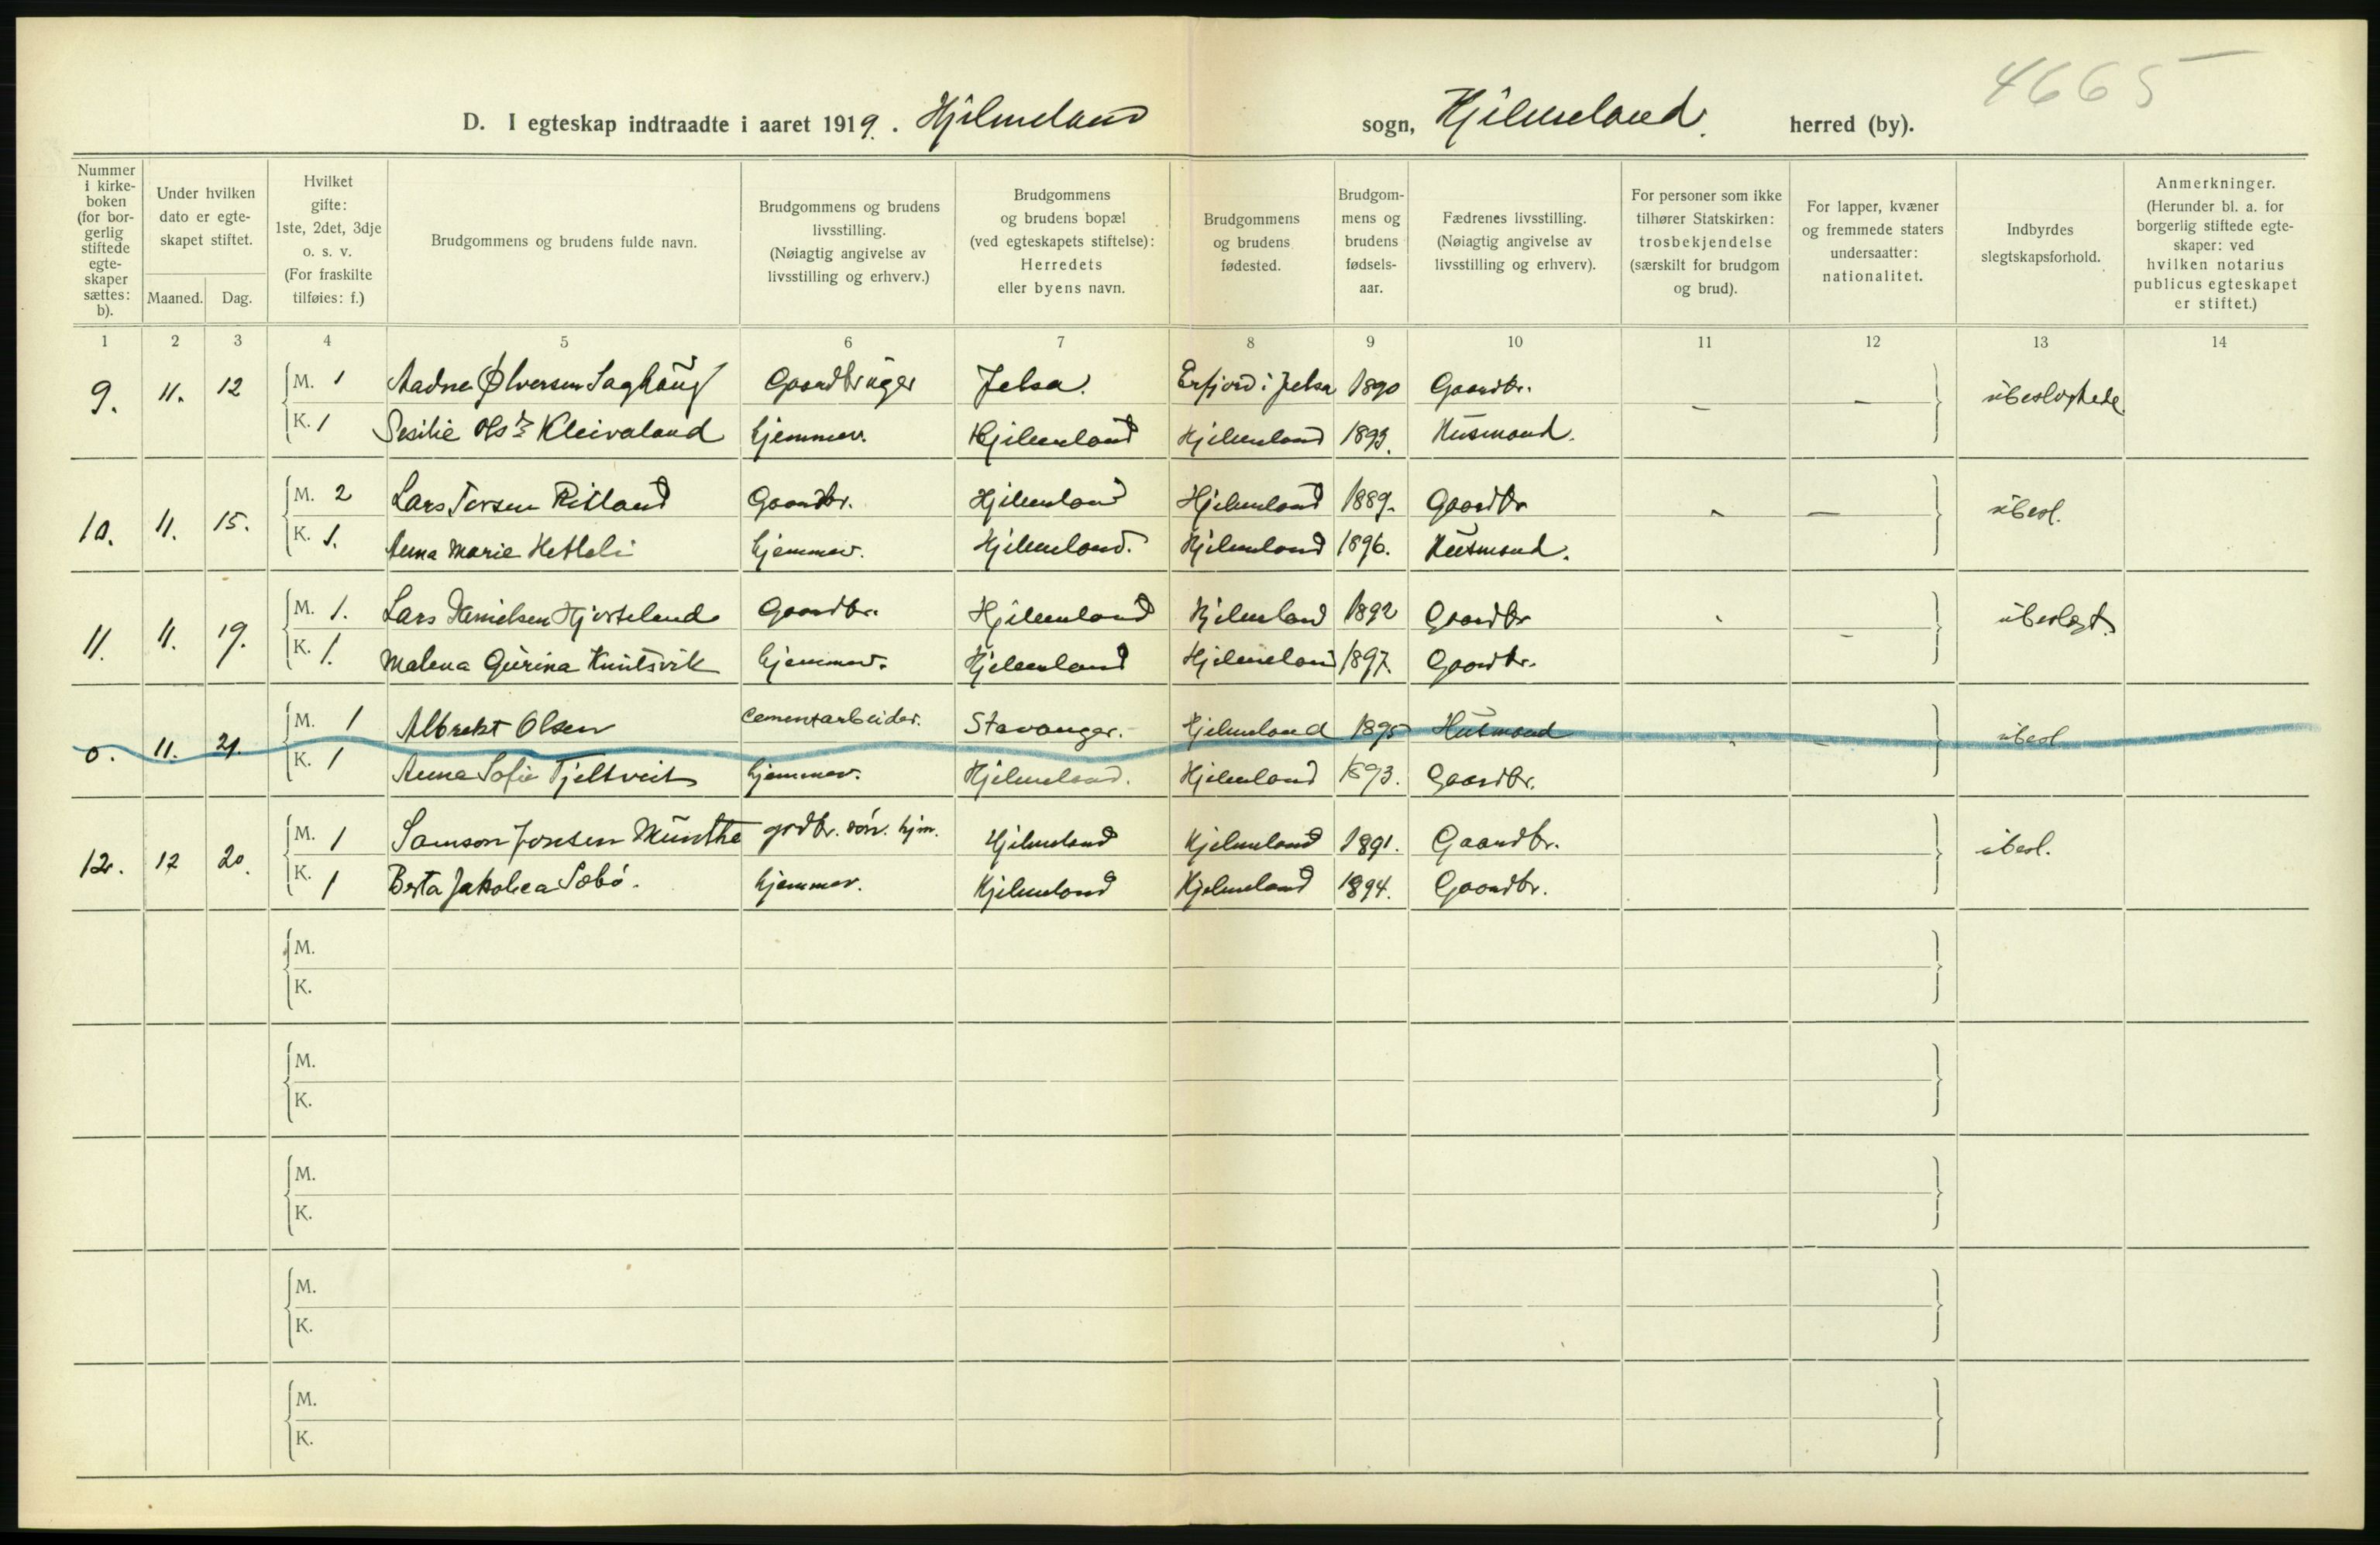 4665
D. I egteskap indtraadte i aaret 1919. Hjelmeland sogn, Hjelmeland herred (by).
Nummer i kirkeboken (for borgerlig stiftede egteskaper sættes: b).
Under hvilken dato er egteskapet stiftet.
Maaned. Dag.
Hvilket gifte: 1ste, 2det, 3dje o. s. v. (For fraskilte tilføies: f.)
Brudgommens og brudens fulde navn.
Brudgommens og brudens livsstilling. (Nøiagtig angivelse av livsstilling og erhverv.)
Brudgommens og brudens bopæl (ved egteskapets stiftelse): Herredets eller byens navn.
Brudgommens og brudens fødested.
Brudgommens og brudens fødselsaar.
Fædrenes livsstilling. (Nøiagtig angivelse av livsstilling og erhverv).
For personer som ikke tilhører Statskirken: trosbekjendelse (særskilt for brudgom og brud).
For lapper, kvæner og fremmede staters undersaatter: nationalitet.
Indbyrdes slegtskapsforhold.
Anmerkninger. (Herunder bl. a. for borgerlig stiftede egteskaper: ved hvilken notarius publicus egteskapet er stiftet.)
1 2 3 4 5 6 7 8 9 10 11 12 13 14
9. 11. 12 M. 1 Aadne Ølversen Saghaug Gaardbruger Jelsa. Erfjord i Jelsa 1890 Gaardbr. — — ubeslegtede
K. 1 Sesilie Olsdr Kleivaland hjemmev. Hjelmeland Hjelmeland 1893. Husmand.
10. 11. 15. M. 2 Lars Torsen Ritland Gaardbr. Hjelmeland Hjelmeland 1889. Gaardbr - — ubesl.
K. 1. Anna Marie Hetleli hjemmev. Hjelmeland. Hjelmeland 1896. Husmand.
11. 11. 19. M. 1. Lars Danielsen Hjorteland Gaardbr. Hjelmeland Hjelmeland 1892 Gaardbr - ubeslegt.
K. 1. Malena Gurina Knutsvik hjemmev. Hjelmeland Hjelmeland 1897. Gaardbr.
0. 11. 21. M. 1 Albrekt Olsen Cementarbeider. Stavanger. Hjelmeland 1895 Husmand ubesl
K. 1 Anna Sofie Tjeltveit hjemmev. Hjelmeland. Hjelmeland 1893. Gaardbr.
12. 12 20. M. 1 Samson Jonsen Munthe grdbr. søn. hjm. Hjelmeland Hjelmeland 1891. Gaardbr. ubesl.
K. 1 Berta Jakobea Sæbø. hjemmev. Hjelmeland Hjelmeland 1894. Gaardbr.
M.
K.
M.
K.
M.
K.
M.
K.
M.
K.